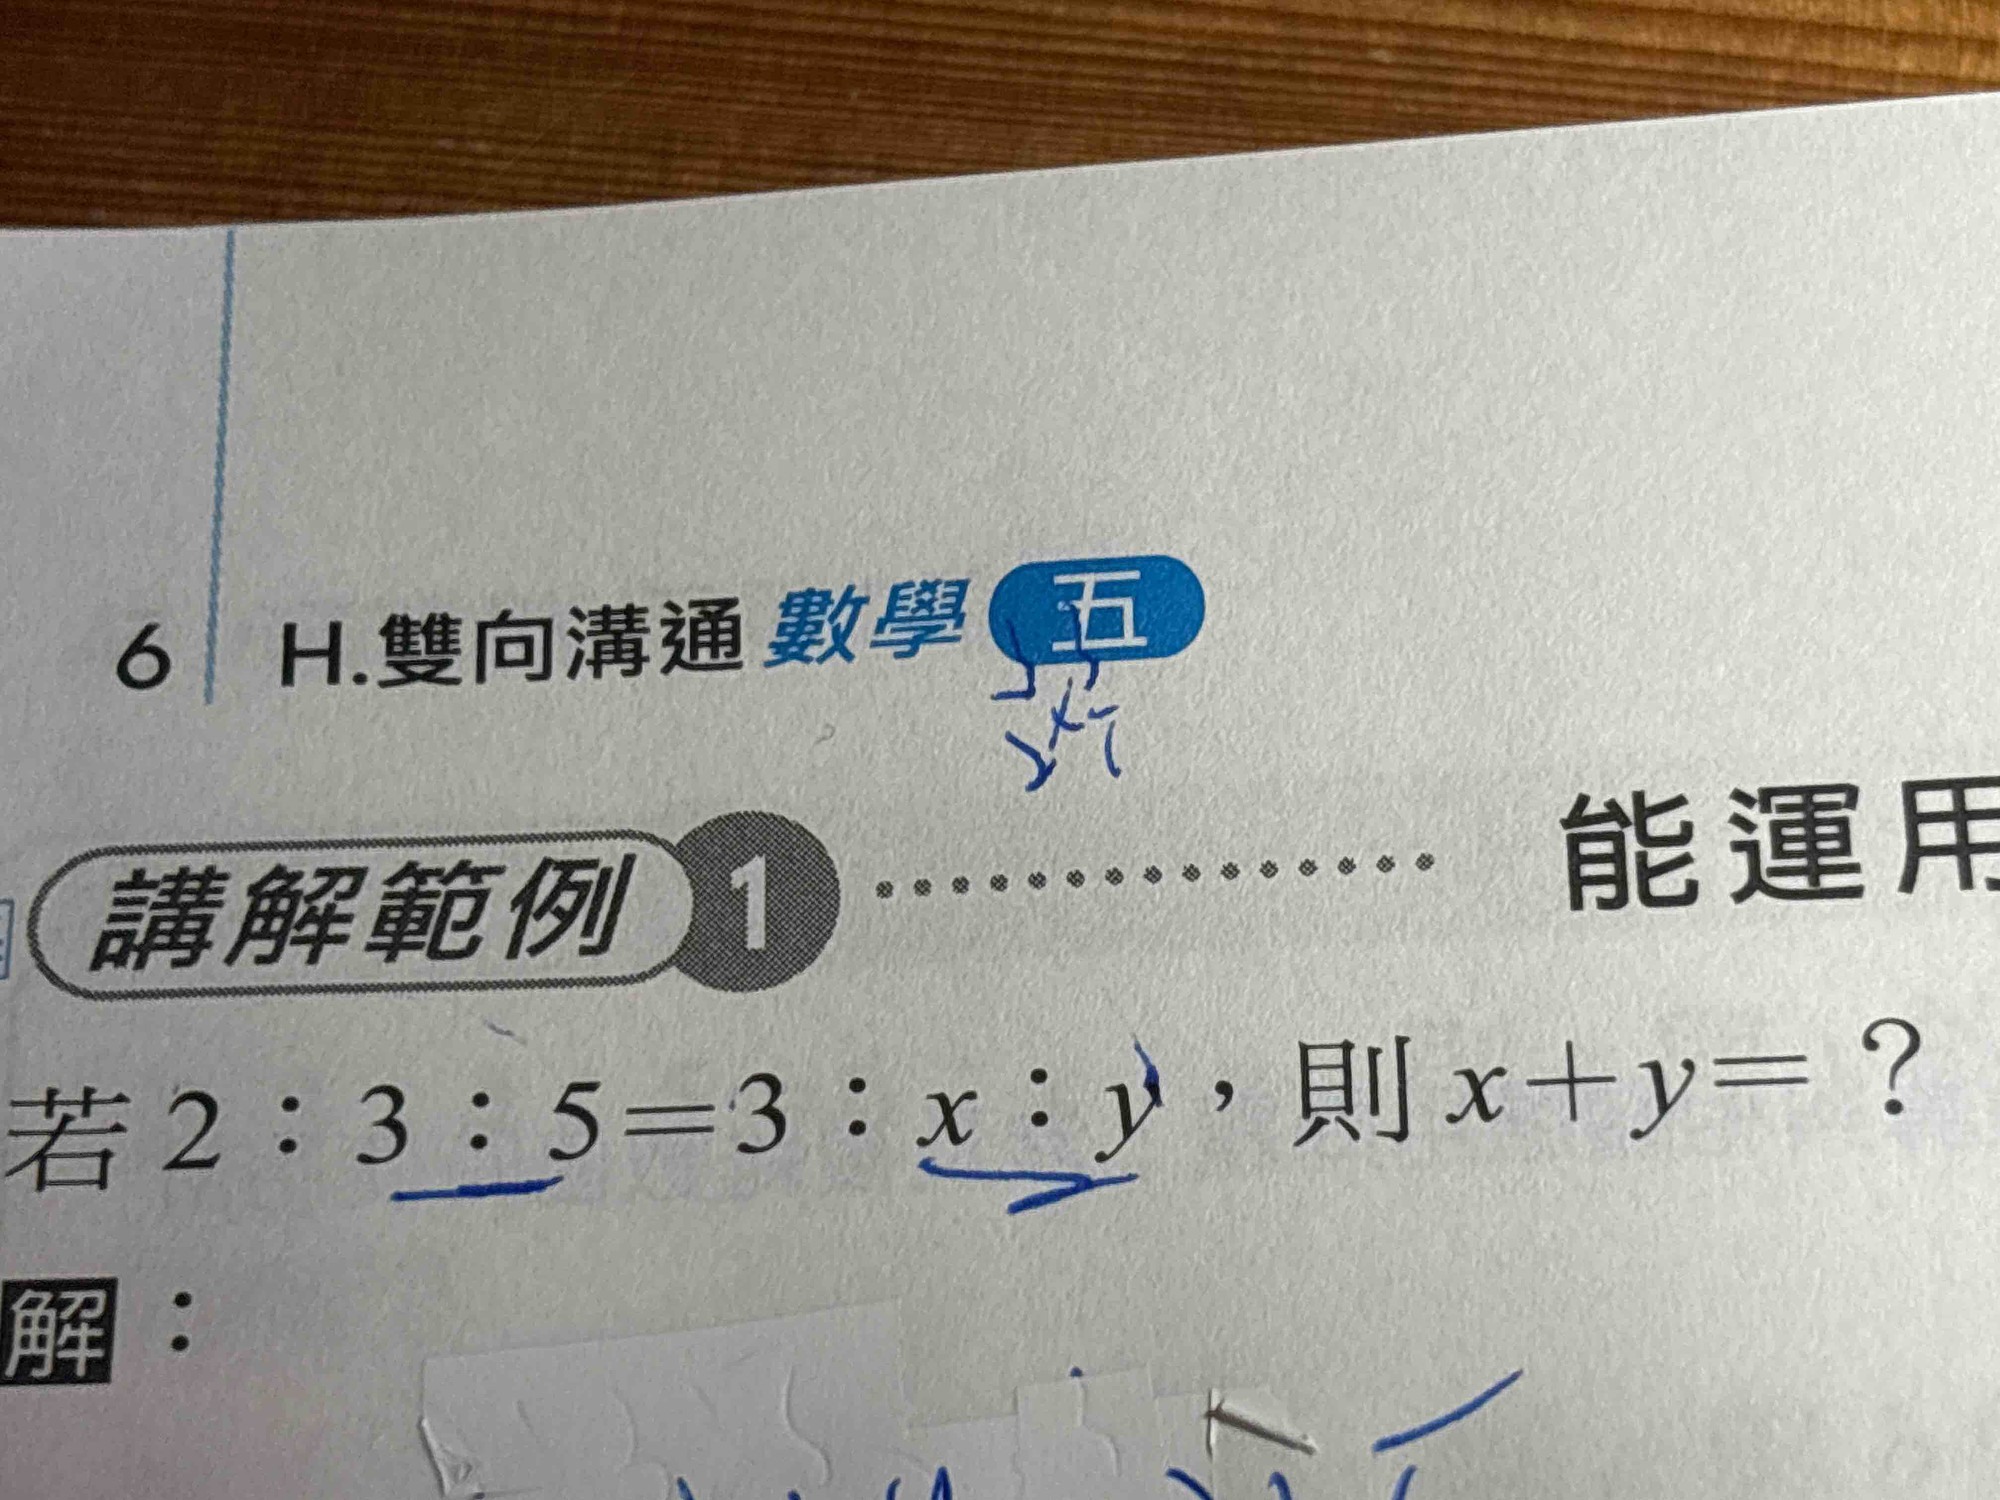 6 H.雙向溝通 數學 五
講解範例 1 能運用
若 2：3：5=3：x：y，則 x+y=？
解：